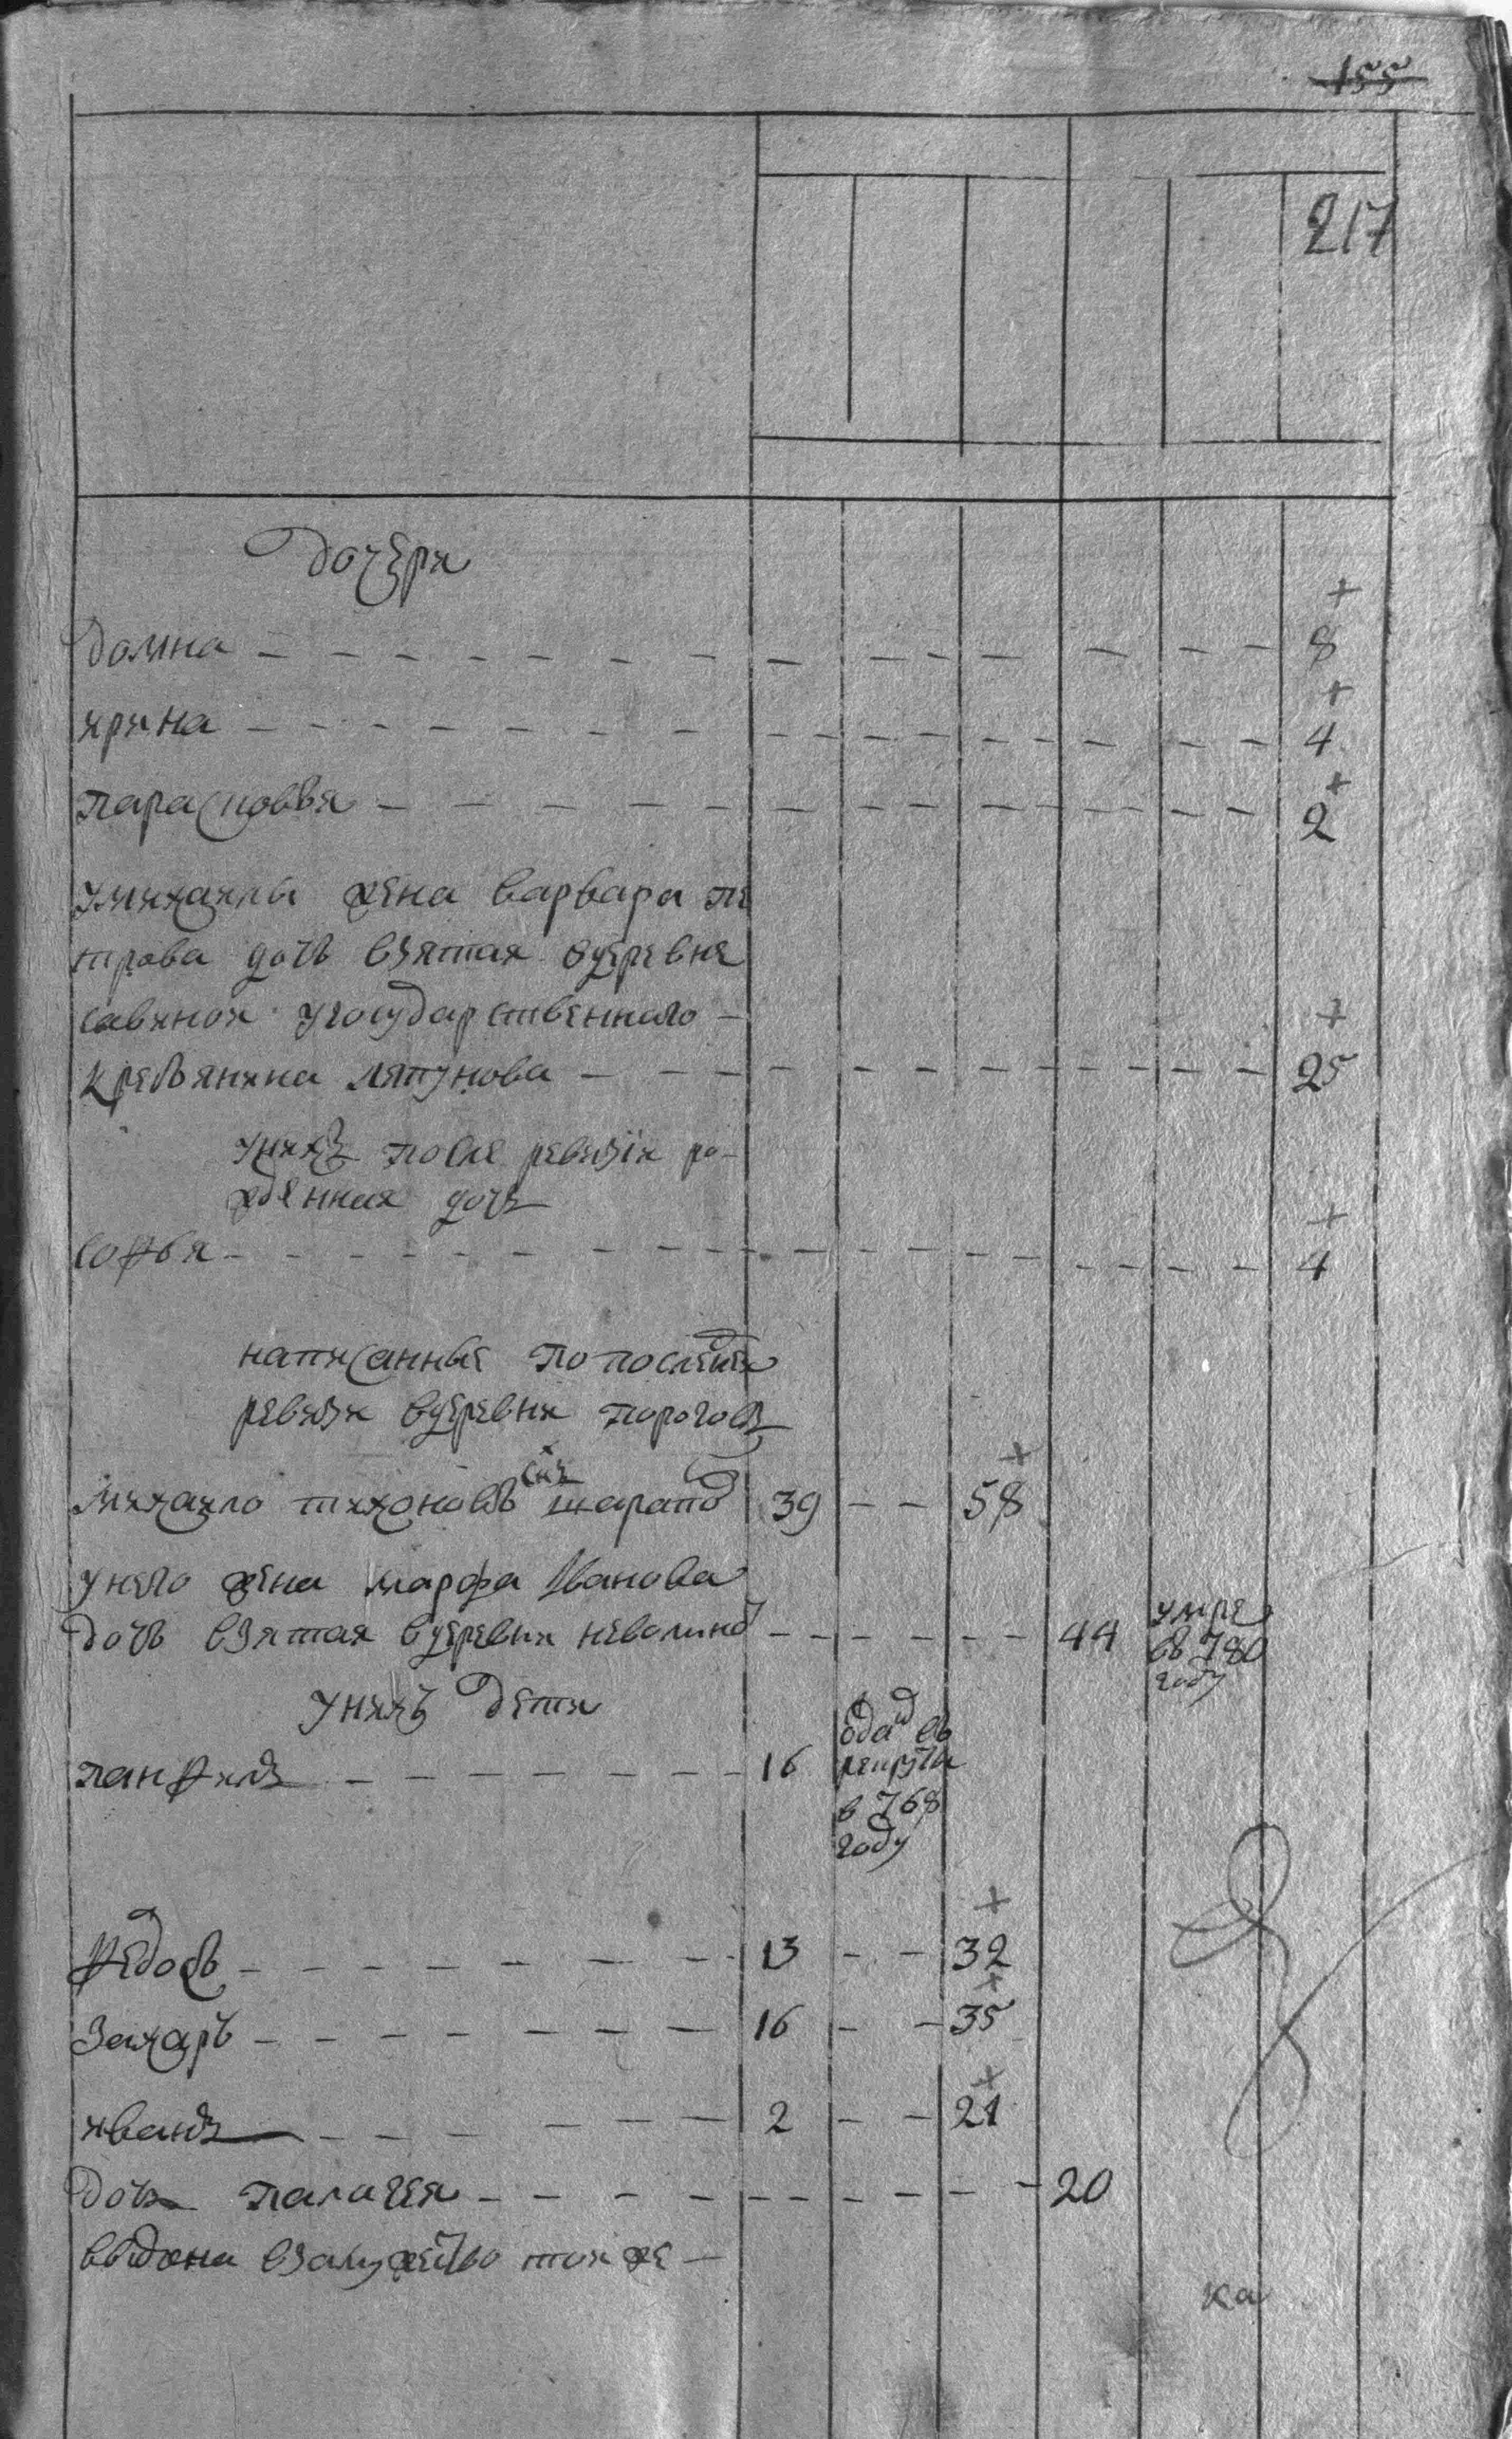 155
217
дочери
+
домна — — — 8
+
ирина — — — 4
+
парасковья — — — 2
умихаилы жена варвара пе
трова дочь взятая вдеревне
савиной угосударственнаго — +
крестьянина ляпунова — — — 25
унихъ после ревизiи ро-
жденная дочь
+
софья — — — 4
написанные по последней
ревизи вдеревни пороговъ
+
михаило тихоновъ снъ шарапов 39 — — 58
унего жена марфа Иванова
дочь взятая вдеревни неволиной — — — 44 умре в 780 году
унихъ дети
панфилъ — — — 16 одан в рекруты в 768 году
+
федосъ — — — 13 — — 32
+
Захаръ — — — 16 — — 35
+
иванъ — — — 2 — — 21
дочь палагея — — — 20
выдана взамужество той же —
ка